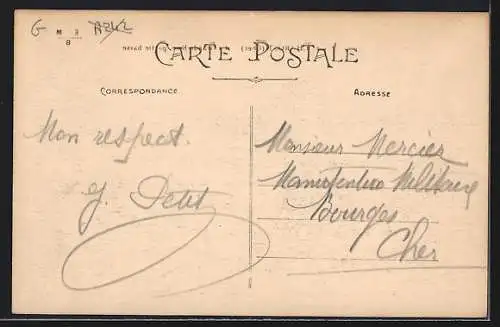 G M 3 AZ42
8
CARTE POSTALE
CORRESPONDANCE
ADRESSE
Mon respect.
J. Petit
Monsieur Mercier
Manutention Militaire
Bourges
Cher